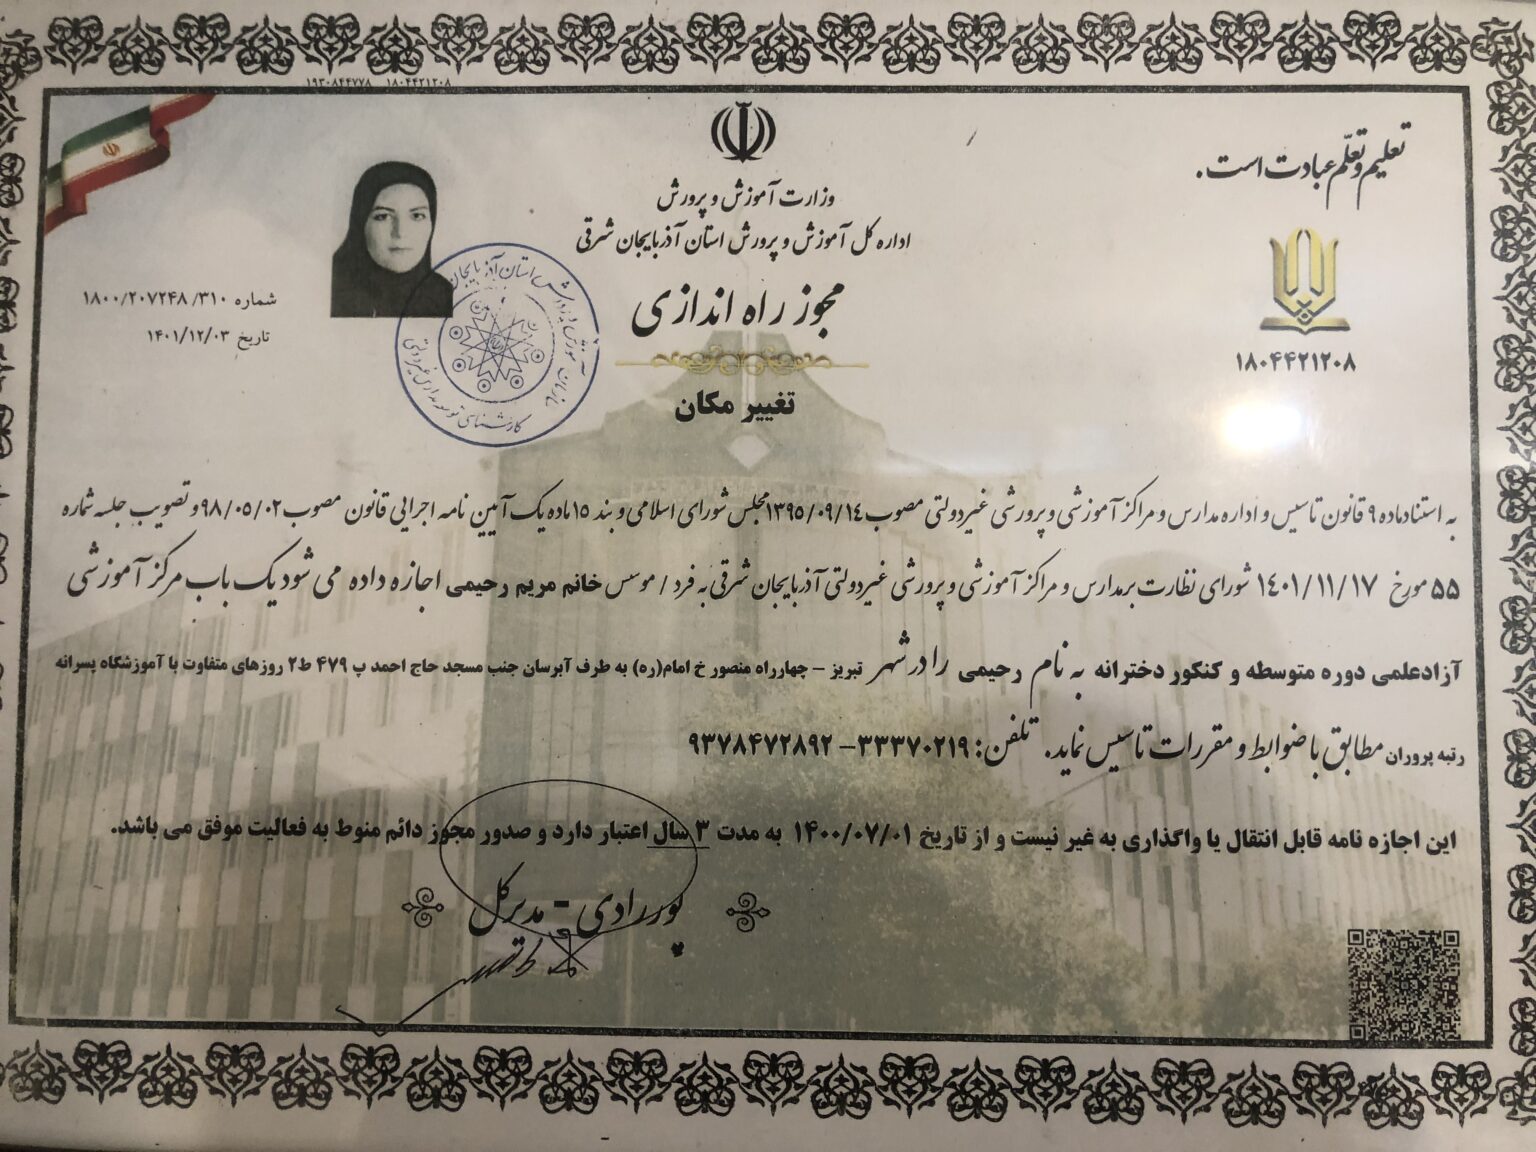 ۱۹۳۰۸۴۴۷۷۸ ۱۸۰۴۴۲۱۲۰۸
تعلیم و تعلّم عبادت است.
وزارت آموزش و پرورش
اداره کل آموزش و پرورش استان آذربایجان شرقی
مجوز راه اندازی
تغییر مکان
۱۸۰۴۴۲۱۲۰۸
شماره ۱۸۰۰/۲۰۷۲۴۸/۳۱۰
تاریخ ۱۴۰۱/۱۲/۰۳
به استناد ماده ۹ قانون تاسیس و اداره مدارس و مراکز آموزشی و پرورشی غیردولتی مصوب ۱۳۹۵/۰۹/۱۴ مجلس شورای اسلامی و بند ۱۵ ماده یک آیین نامه اجرایی قانون مصوب ۹۸/۰۵/۰۲ و تصویب جلسه شماره
۵۵ مورخ ۱۴۰۱/۱۱/۱۷ شورای نظارت بر مدارس و مراکز آموزشی و پرورشی غیردولتی آذربایجان شرقی به فرد / موسس خانم مریم رحیمی اجازه داده می شود یک باب مرکز آموزشی
آزادعلمی دوره متوسطه و کنکور دخترانه به نام رحیمی را در شهر تبریز – چهارراه منصور خ امام(ره) به طرف آبرسان جنب مسجد حاج احمد پ ۴۷۹ ط۲ روزهای متفاوت با آموزشگاه پسرانه
رتبه پروران مطابق با ضوابط و مقررات تاسیس نماید. تلفن: ۳۳۳۷۰۲۱۹– ۹۳۷۸۴۷۲۸۹۲
این اجازه نامه قابل انتقال یا واگذاری به غیر نیست و از تاریخ ۱۴۰۰/۰۷/۰۱ به مدت ۳ سال اعتبار دارد و صدور مجوز دائم منوط به فعالیت موفق می باشد.
پوررادی - مدیرکل